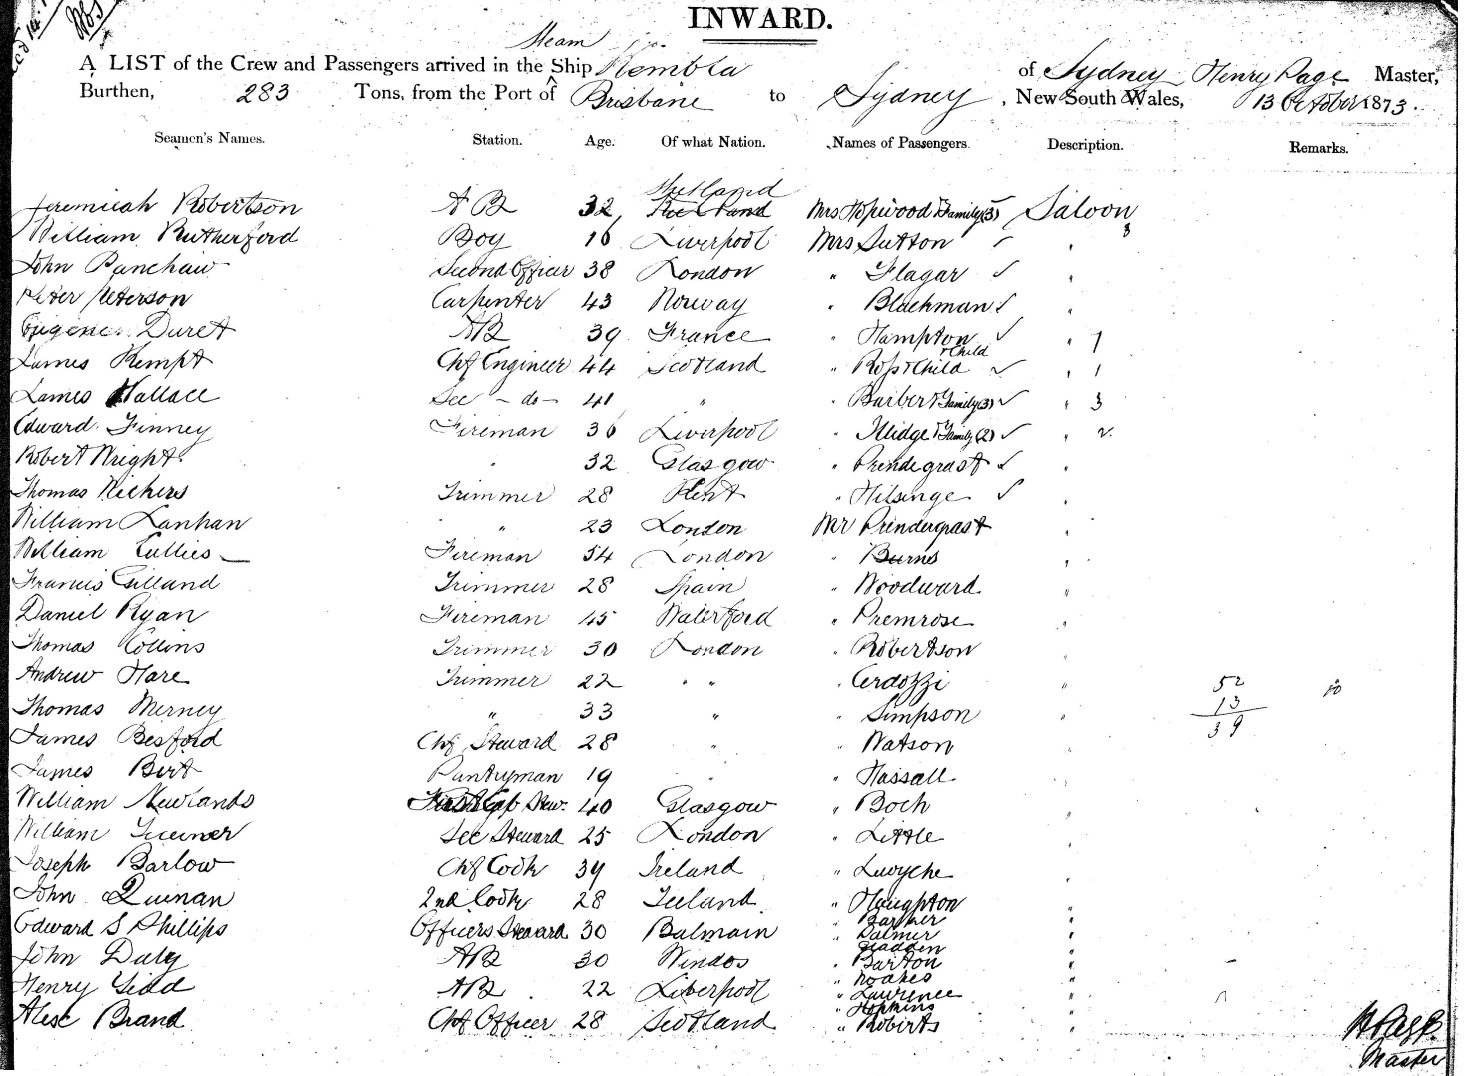 INWARD.
Steam
A LIST of the Crew and Passengers arrived in the Ship Kembla of Sydney Henry Page Master,
Burthen, 283 Tons, from the Port of Brisbane to Sydney, New South Wales, 13 October 1873.
Seamen's Names. Station. Age. Of what Nation. Names of Passengers. Description. Remarks.
Shetland
Jeremiah Robertson AB 32 Mrs Hopwood & Family (3) Saloon
William Rutherford Boy 16 Liverpool Mrs Sutton " 8
John Panchaw Second Officer 38 London " Flagar "
Peter Peterson Carpenter 43 Norway " Blachman "
Eugene Duret AB 39 France " Hampton & Child " 1
James Kempt Chf Engineer 44 Scotland " Ross & Child " 1
James Wallace Sec - do - 41 " " Barber & Family (3) " 3
Edward Finney Fireman 36 Liverpool " Illidge & Family (2) " 2
Robert Wright " 32 Glasgow " Prendegrast "
Thomas Vickers Trimmer 28 Kent " Hilsinge "
William Lanhan " 23 London Mr Prindergrast "
William Cullies Fireman 54 London " Burns "
Francis Gilland Trimmer 28 Spain " Woodward "
Daniel Ryan Fireman 45 Waterford " Premrose "
Thomas Collins Trimmer 30 London " Robertson "
Andrew Hare Trimmer 22 " " " Cerdozzi " 52
Thomas Merney " 33 " " Simpson " 13
James Besford Chf Steward 28 " " Watson " 39
James Bert Pantryman 19 " " Hassall "
William Newlands Stew. 40 Glasgow " Boch "
William Turner Sec Steward 25 London " Little "
Joseph Barlow Chf Cook 39 Ireland " Lwyche "
John Quinan 2nd Cook 28 Ireland " Haughton "
" Barker "
Edward S Phillips Officers Steward 30 Balmain " Palmer "
" Gladden "
John Daly AB 30 Windos " Barton "
" Noakes "
Henry Gidd AB 22 Liverpool " Lawrence "
" Hopkins "
Alesc Brand Chf Officer 28 Scotland " Roberts "
H Page
Master